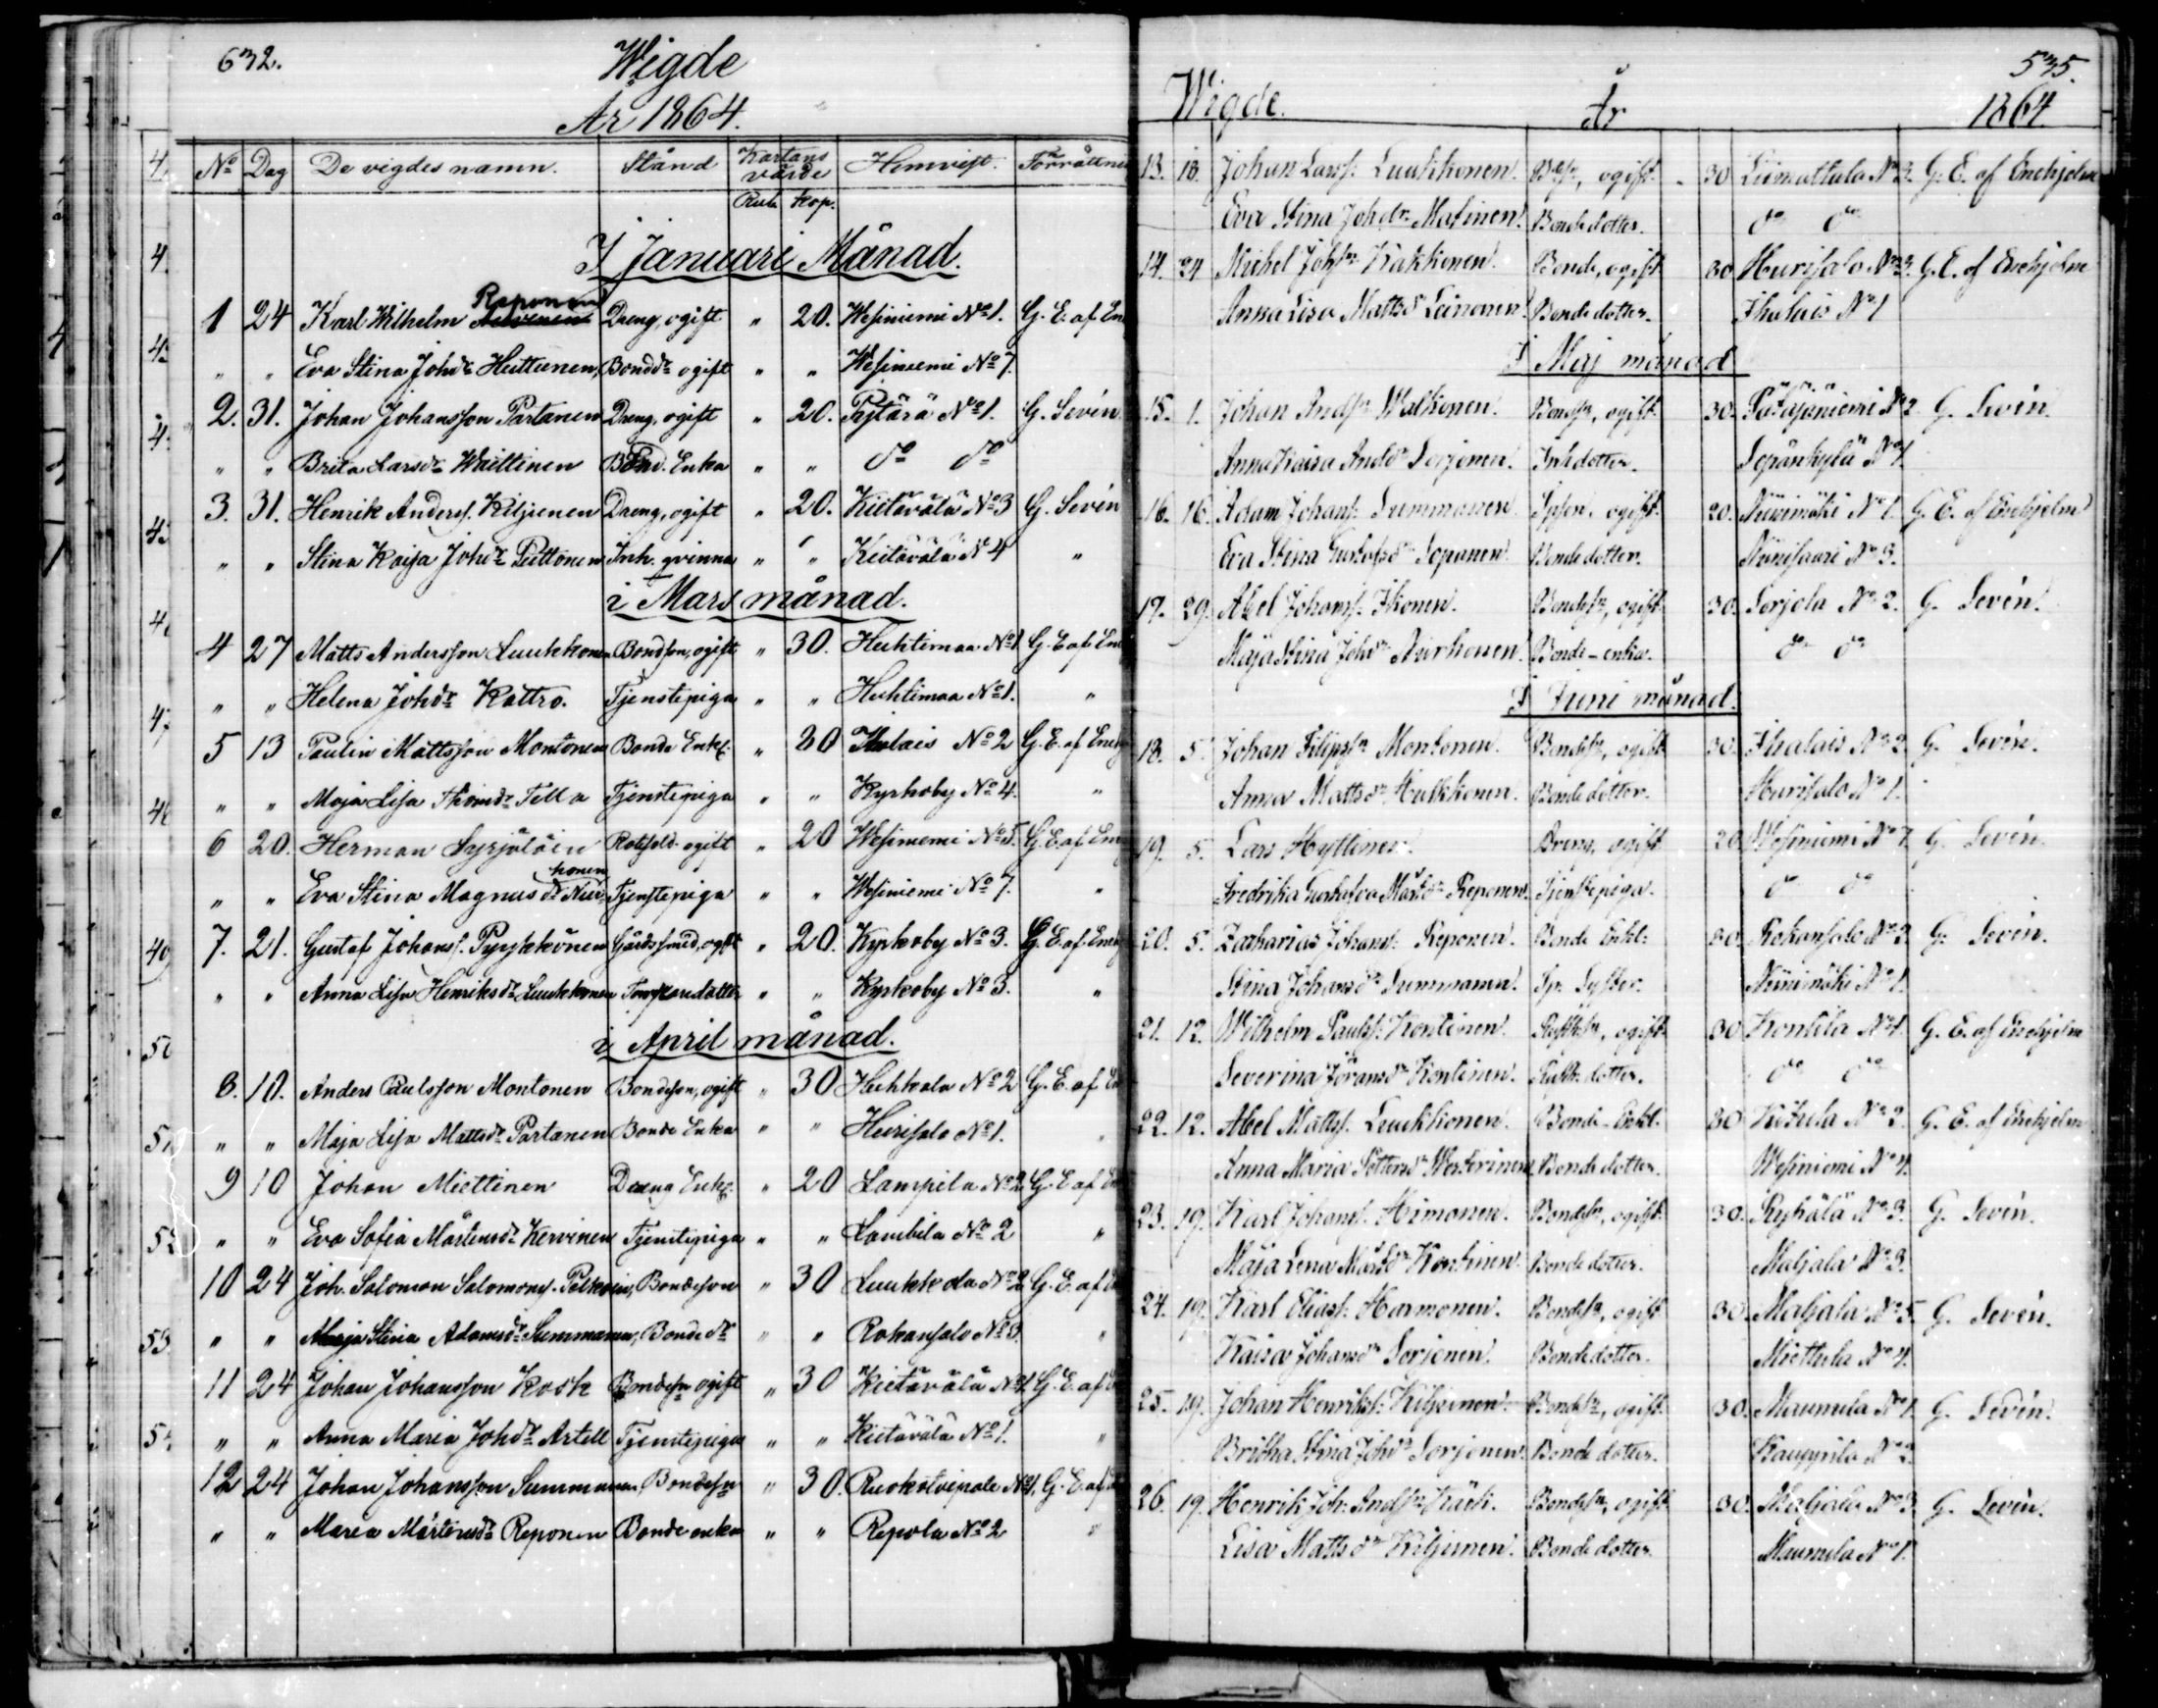 632.
Wigde
År 1864.
No Dag De vigdes namn. Stånd Kartans värde Hemvist. Förrättne
Rub. Kop.
I Januari Månad.
Reponen
1 24 Karl Wilhelm Dreng, ogift " 20. Wesiniemi No 1. G. E. af En
" " Eva Stina Johdr Huttunen, Bonddr ogift " " Wesiniemi No 7.
2. 31. Johan Johansson Partanen Dreng, ogift " 20. Pytärä No 1. G. Sevén
" " Brita Larsdr Waittinen Enka " " do do
3. 31. Henrik Anderss. Kiljunen Dreng, ogift " 20. Kietävälä No 3 G. Sevén
" " Stina Kaisa Johdr Puttonen Inh. qvinna " " Kietävälä No 4 "
i Mars månad.
4 27 Matts Andersson Luukkonen Bondson, ogift " 30. Huhtimaa No 1 G. E. af Ene
" " Helena Johdr Kattro. Tjenstepiga " " Huhtimaa No 1. "
5 13 Paulin Mattsson Montonen Bonde Enkl. " 30 Ihalais No 2 G. E. af Eneh
" " Maja Lisa Thomdr Tella Tjenstepiga " " Kyrkoby No 4. "
6 20. Herman Syrjäläin Rotesold. ogift " 20 Wesiniemi No 5. G. E. af Ene
honen
" " Eva Stina Magnusdr Niu Tjenstepiga " " Wesiniemi No 7. "
7. 21. Gustaf Johanss. Pyykkönen Gårdssmed, ogift " 20. Kyrkoby No 3. G. E. af Ene
" " Anna Lisa Henriksdr Luukkonen Torparedotter " " Kyrkoby No 3. "
i April månad.
8. 10. Anders Paulsson Montonen Bondeson, ogift " 30 Huhkala No 2 G. E. af En
" " Maja Lisa Mattsdr Partanen Bonde Enka " " Hurisalo No 1. "
9 10 Johan Miettinen Dreng Enkl. " 20 Lampila No 2 G. E. af E
" " Eva Sofia Mårtensdr Kervinen Tjenstepiga " " Lambila No 2 "
10 24 Joh. Salomon Salomons. Pelkoin, Bondeson " 30 Luukkola No 2 G. E. af E
" " Maja Stina Adamsdr Summanen, Bonde dr " " Rokansalo No 3 "
11 24 Johan Johansson Kock Bondesn ogift " 30 Kietävälä No 4 G. E. af E
" " Anna Maria Johdr Artell Tjenstepiga " " Kietävälä No 1. "
12 24 Johan Johansson Summanen, Bondesn " 30. Ruokotaipale No 1, G. E. af
" " Maria Mårtensdr Reponen Bonde enka " " Repola No 2 "
535.
Wigde. År 1864
13. 18. Johan Larss. Luukkonen. ogift. 30 Liimattala No 3. G. E. af Enehjelm
Eva Stina Johdr Matinen. Bonde dotter. do do
14. 24 Michel Johsn Kakkonen. Bonde, ogift 30 Hurisalo No 3. G. E. af Enehjelm
Anna Lisa Mattsdr Leinonen. Bonde dotter. Ihalais No 1
I Maj månad
15. 1. Johan Andsn Walkonen. Bondsn, ogift. 30. Patajaniemi No 2 G. Sevén.
Anna Kaisa Andsdr Sorjonen. Inh dotter. Sepänkylä No 1
16. 16. Adam Johans. Summanen. ogift. 20. Niinimäki No 1. G. E. af Enehjelm
Eva Stina Gustafsdr Sopanen. Bonde dotter. Niinisaari No 3.
17. 29. Abel Johans. Ikonen. Bondesn, ogift 30. Sorjola No 2. G. Sevén.
Maja Stina Johdr Auvhonen. Bonde-enka. do do
I Juni månad.
18. 5. Johan Filipsn Montonen. Bondesn, ogift 30. Ihalais No 2. G. Sevén.
Anna Mattsdr Hulkkonen. Bonde dotter. Hurisalo No 1.
19. 5. Lars Hyttinen. Dreng, ogift 20. Wesiniemi No 7. G. Sevén.
Fredrika Gustafva Mårtdr Reponen. Tjenstepiga. do do
20. 5. Zacharias Johans. Reponen. Bonde Enkl. 30. Rokansalo No 2. G. Sevén.
Stina Johansdr Summanen. Sp. Syster. Niinimäki No 1.
21. 12. Wilhelm Pauls. Kontinen. ogift. 30 Kontila No 1. G. E. af Enehjelm
Severina Göransdr Kontinen. dotter. do do
22. 12. Abel Matts. Luukkonen. Bonde-Enkl. 30. Kukula No 2. G. E. af Enehjelm
Anna Maria Pettersdr Westerinen Bonde dotter. Wesiniemi No 4.
23. 19. Karl Johans. Himonen. Bondesn, ogift. 30. Ryhälä No 3. G. Sevén.
Maja Lena Mårtdr Kontinen. Bonde dotter. Maljala No 3.
24. 19. Karl Eliass. Harmonen. Bondesn, ogift 30. Maljala No 5. G. Sevén.
Kaisa Johansdr Sorjonen. Bonde dotter. Miettula No 4.
25. 19. Johan Henriks. Kiljunen. Bondesn, ogift. 30. Maumula No 1. G. Sevén.
Britha Stina Johdr Sorjonen. Bonde dotter. Kauppila No 2
26. 19. Henrik Joh. Andsn Käck. Bondesn, ogift 30. Maljala No 3. G. Sevén.
Lisa Mattsdr Kiljunen. Bonde dotter. Maumula No 1.